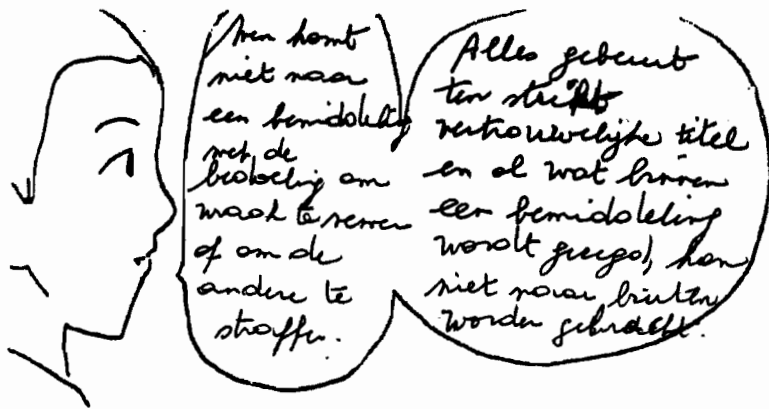 Men komt
niet naar
een bemiddeling
met de
bedoeling om
wraak te nemen
of om de
andere te
straffen.
Alles gebeurt
ten strikt
vertrouwelijke titel
en al wat binnen
een bemiddeling
wordt gezegd, kan
niet naar buiten
worden gebracht.